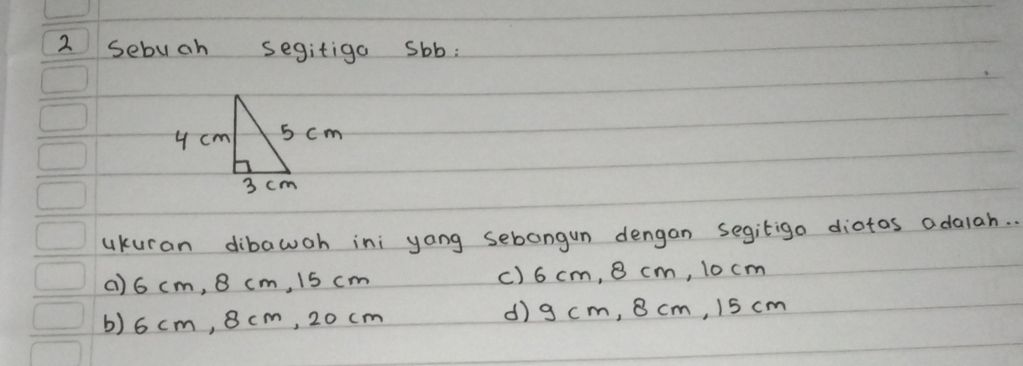 2 Sebuah segitiga sbb:
4 cm 5 cm
3 cm
ukuran dibawah ini yang sebangun dengan segitiga diatas adalah..
a) 6 cm, 8 cm, 15 cm c) 6 cm, 8 cm, 10 cm
b) 6 cm, 8 cm, 20 cm d) 9 cm, 8 cm, 15 cm